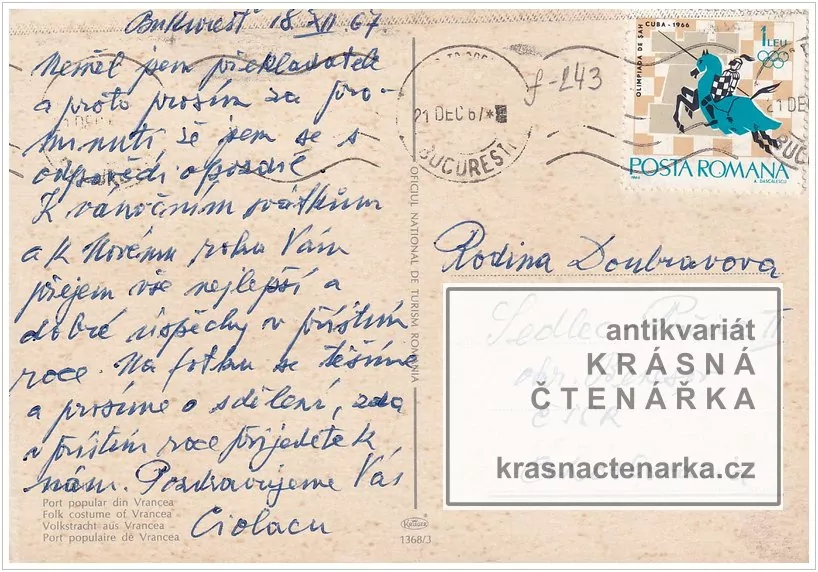 Bukurešť 18 XII 67.
Neměl jsem překladatele
a proto prosím za pro-
minutí, že jsem se s
odpovědí opozdil.
K vánočním svátkům
a k Novému roku Vám
přejem vše nejlepší a
dobré úspěchy v příštím
roce. Na fotku se těšíme
a prosíme o sdělení, zda
v příštím roce přijedete k
nám. Pozdravujeme Vás
Ciolacu
Port popular din Vrancea
Folk costume of Vrancea
Volkstracht aus Vrancea
Port populaire de Vrancea
OFICIUL NATIONAL DE TURISM ROMANIA
1368/3
21 DEC 67
BUCURESTI
f-243
OLIMPIADA DE ŞAH
CUBA-1966
1 LEU
POSTA ROMANA
1966
A. DASCĂLESCU
21 DEC
Rodina Doubravova
Sedlec
antikvariát
KRÁSNÁ
ČTENÁŘKA
krasnactenarka.cz